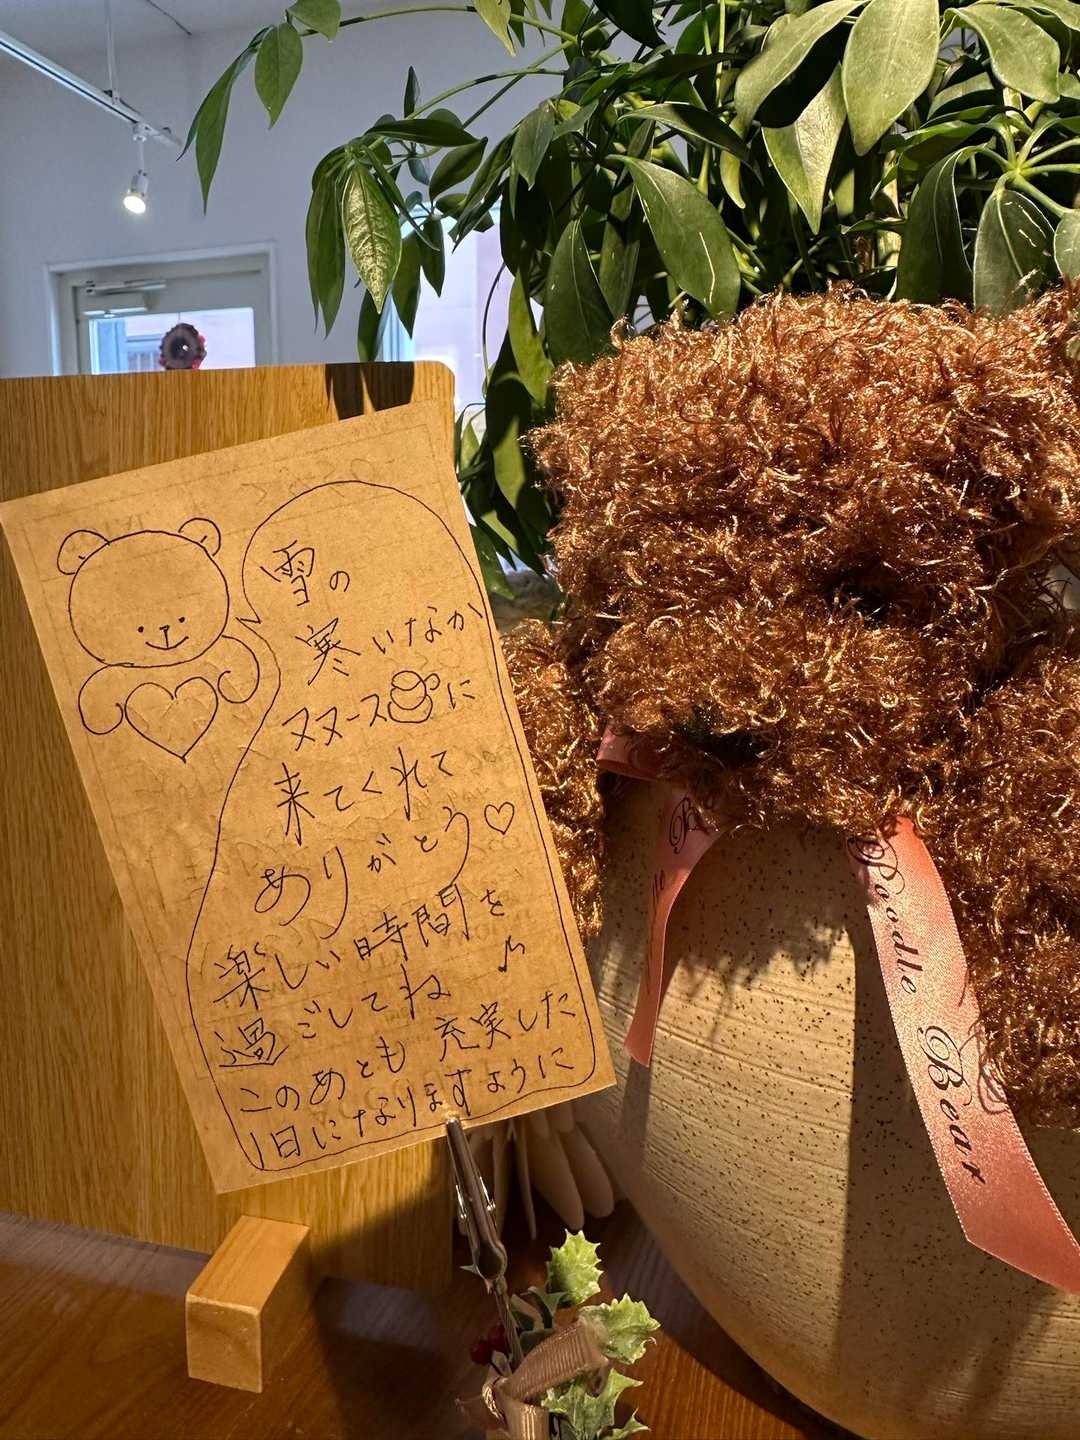 雪の
寒いなか
ヌヌースに
来てくれて
ありがとう♡
楽しい時間を
過ごしてね♪
このあとも充実した
1日になりますように
Poodle Bear